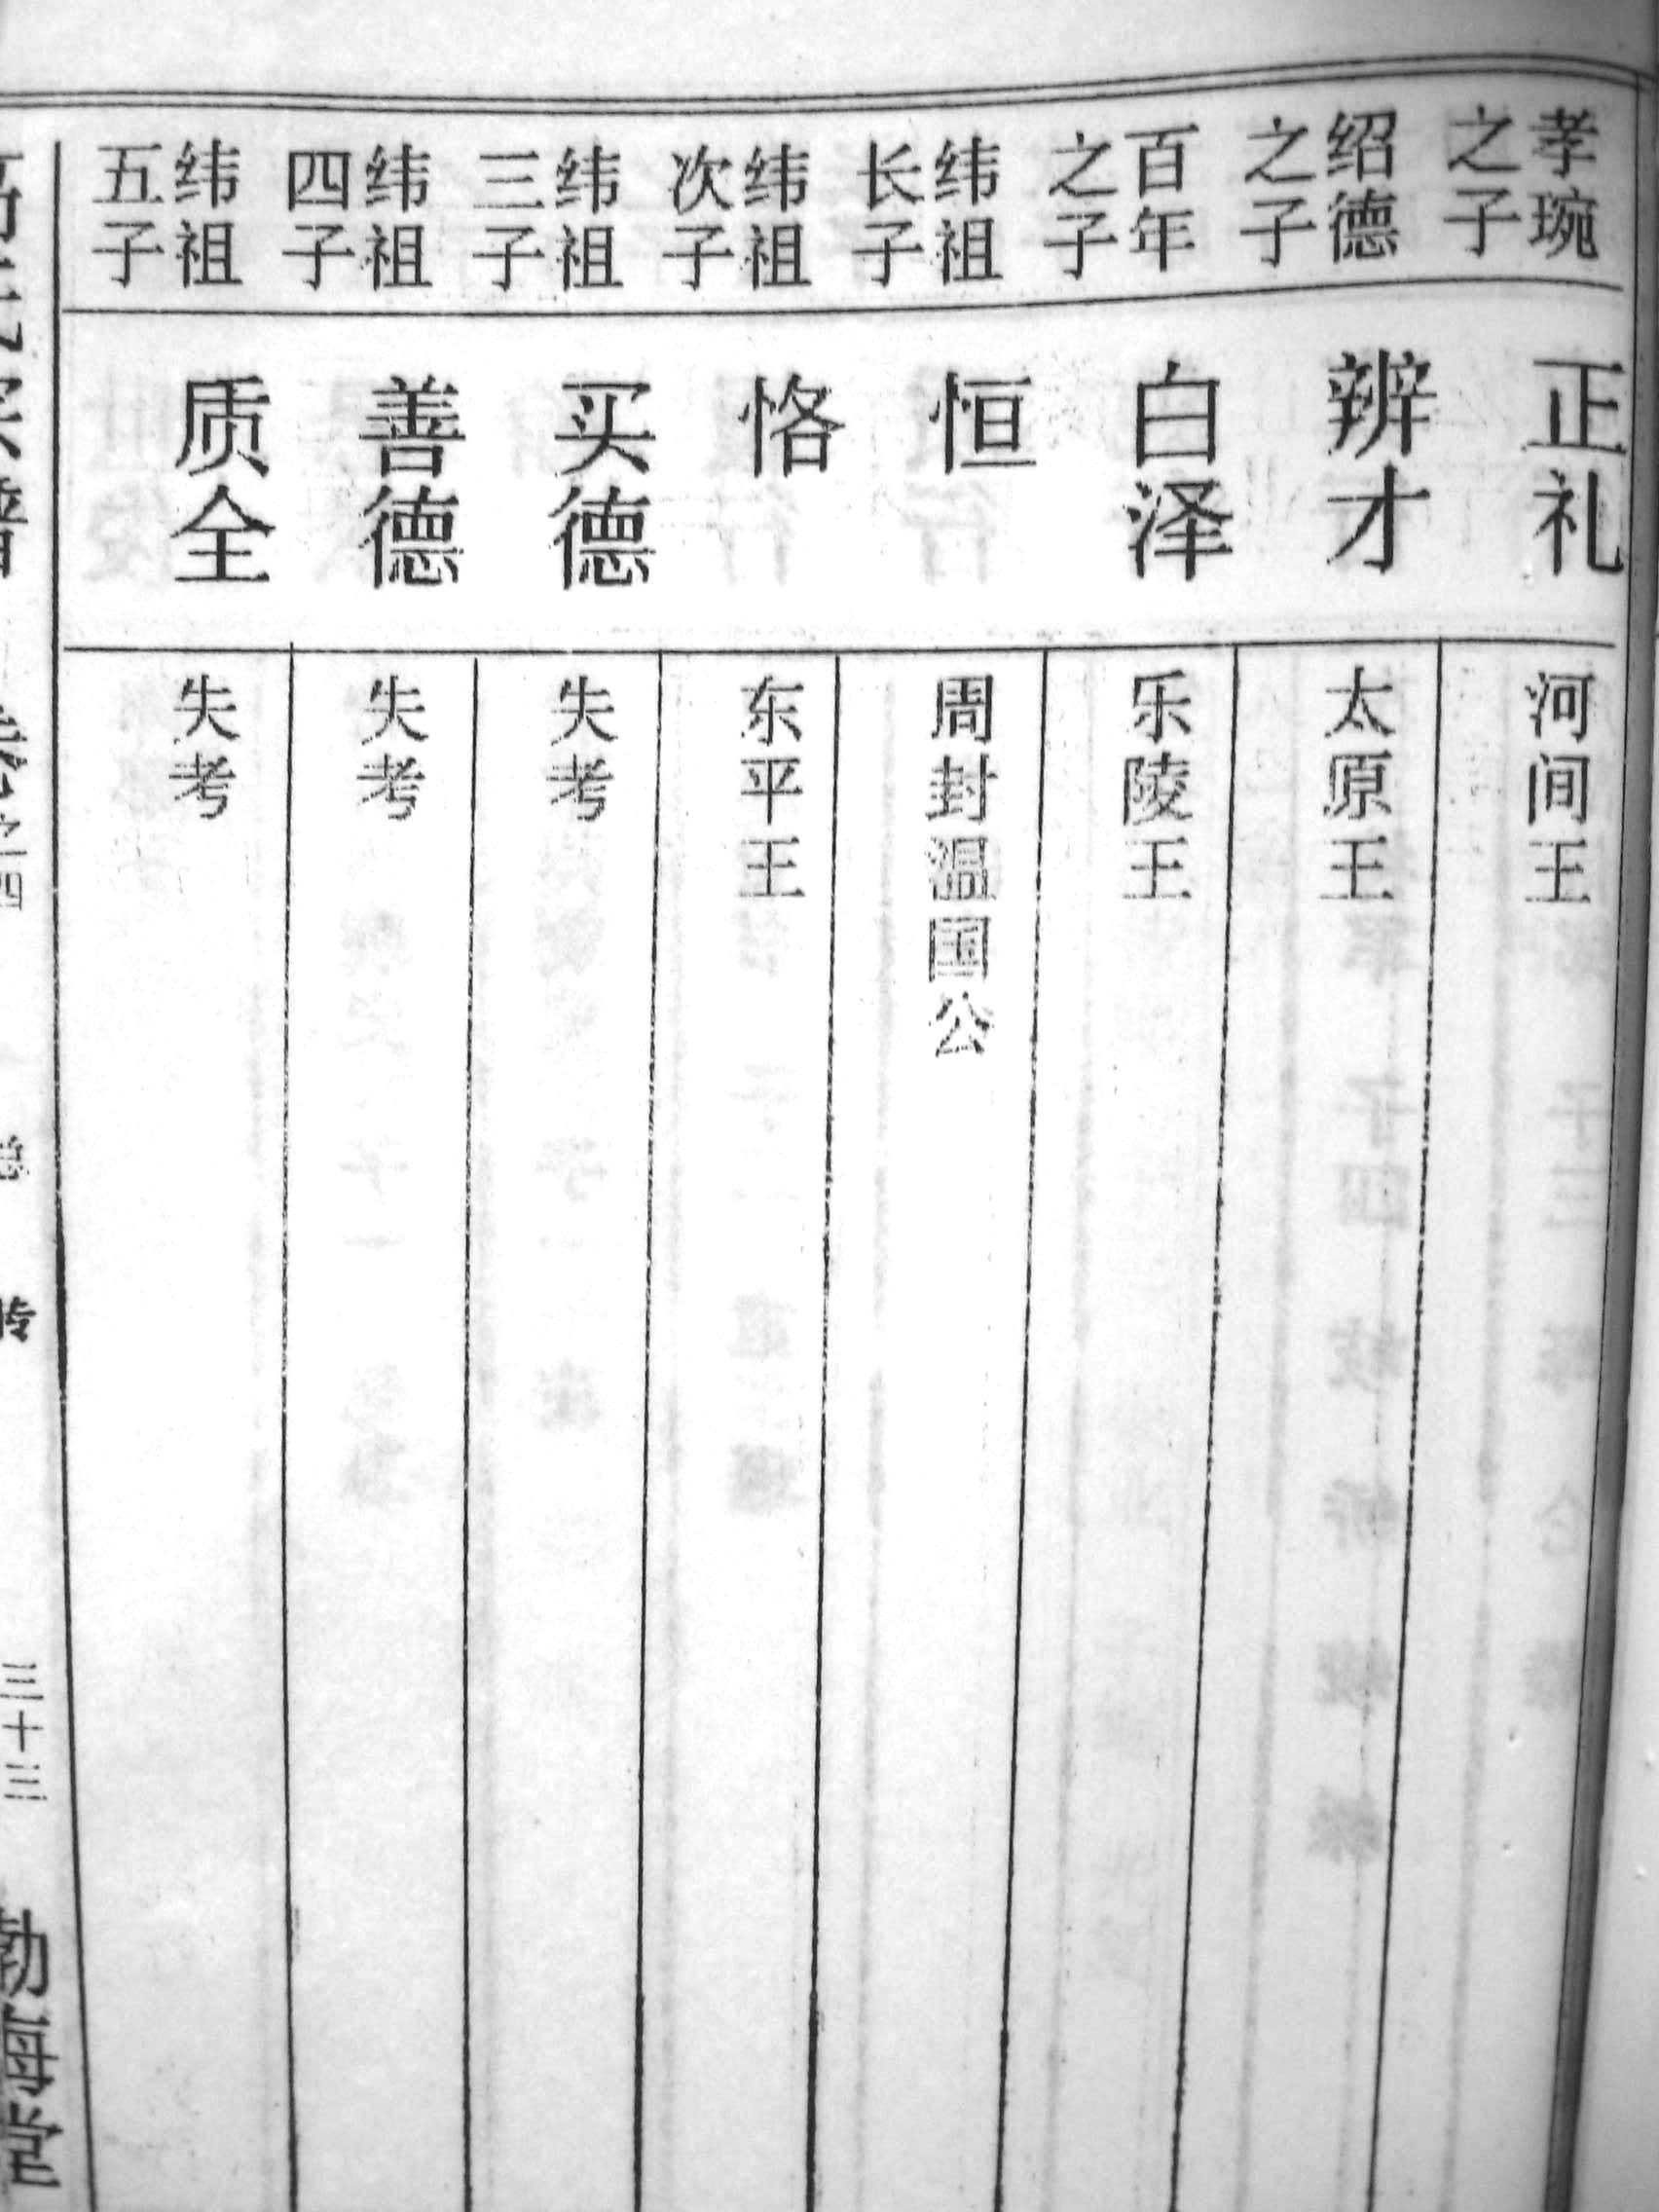 孝琬
之子
正礼
河间王
绍德
之子
辨才
太原王
百年
之子
白泽
乐陵王
纬祖
长子
恒
周封温国公
纬祖
次子
恪
东平王
纬祖
三子
买德
失考
纬祖
四子
善德
失考
纬祖
五子
质全
失考
卷之四
总 传
三十三
勃海堂